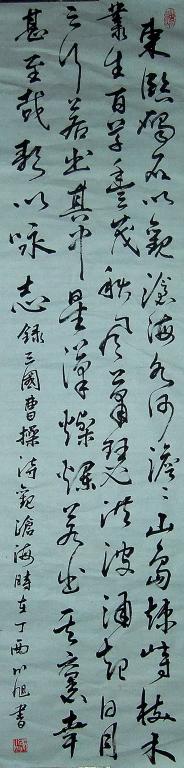 東臨碣石以觀滄海水何澹〻山島竦峙樹木
叢生百草豐茂秋風蕭瑟洪波涌起日月
之行若出其中星漢燦爛若出其裏幸
甚至哉歌以詠志 錄三國曹操詩觀滄海時在丁酉旭書